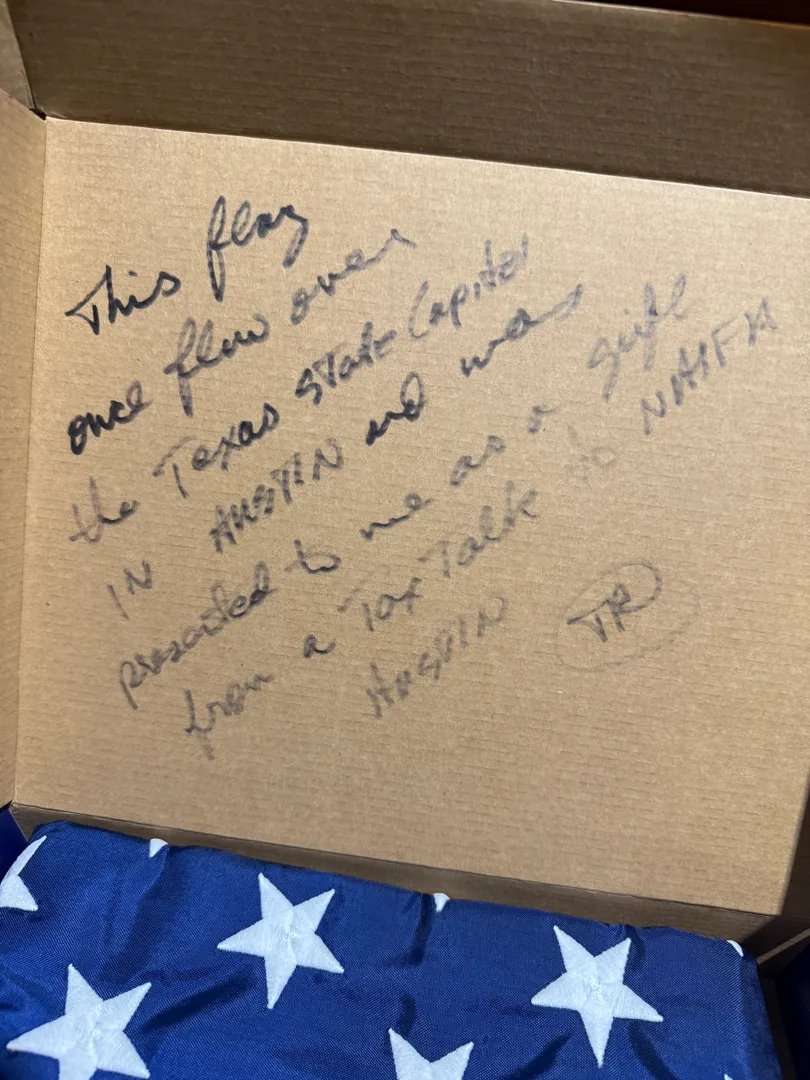 This flag
once flew over
the Texas State Capitol
IN AUSTIN and was
presented to me as a gift
from a Tax Talk to NAIFA
AUSTIN
TR